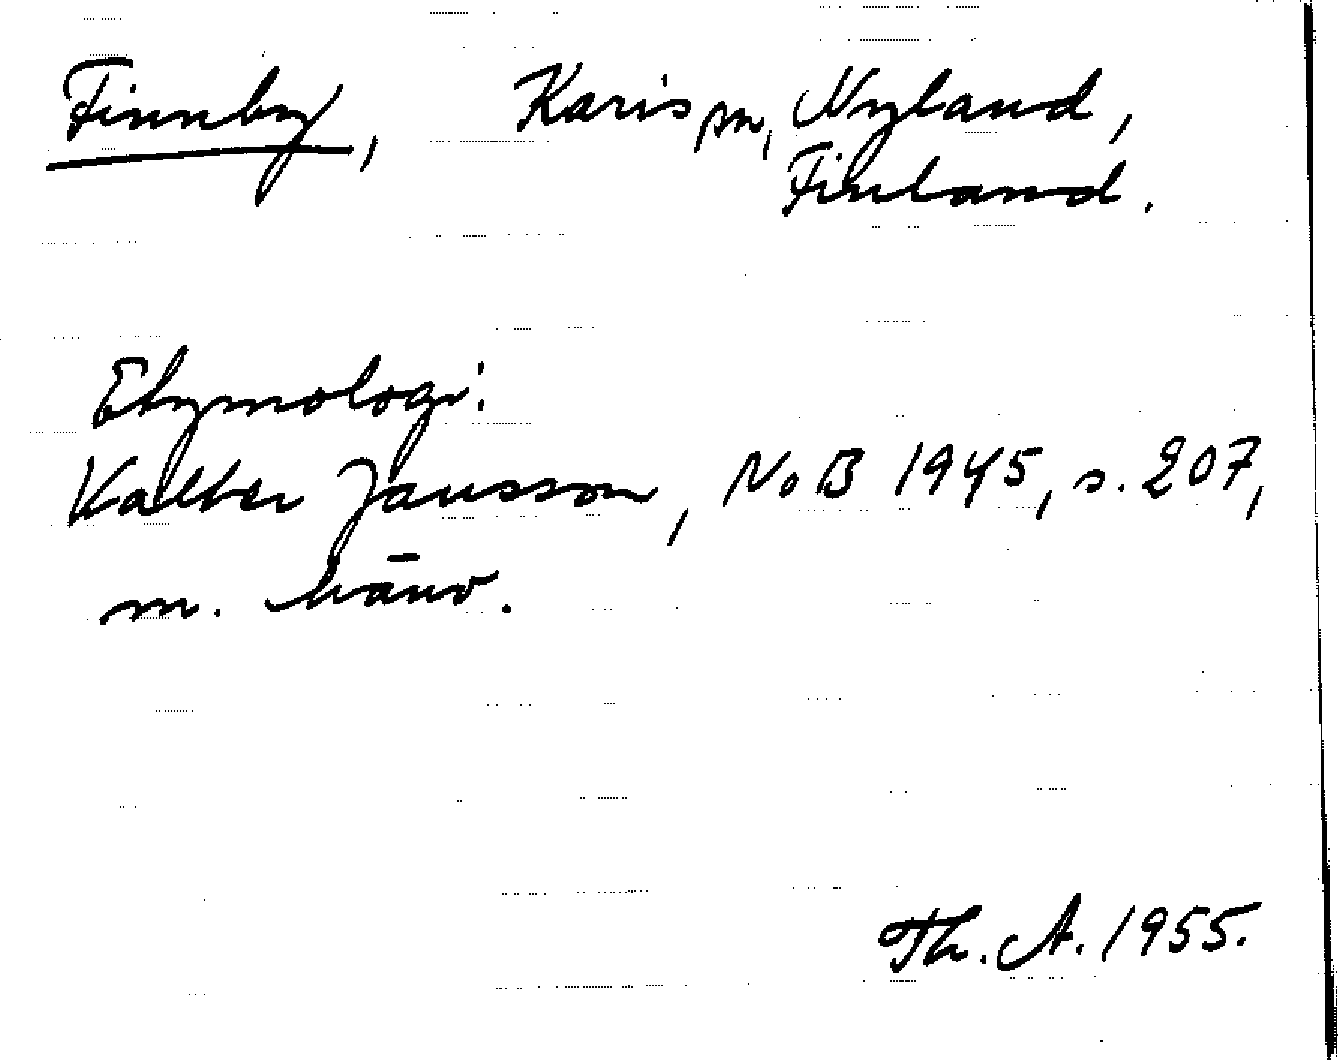 Finnby, Karis sn, Nyland,
Finland.
Etymologi:
Valter Jansson, NoB 1945, s. 207,
m. hänv.
Th. A. 1955.